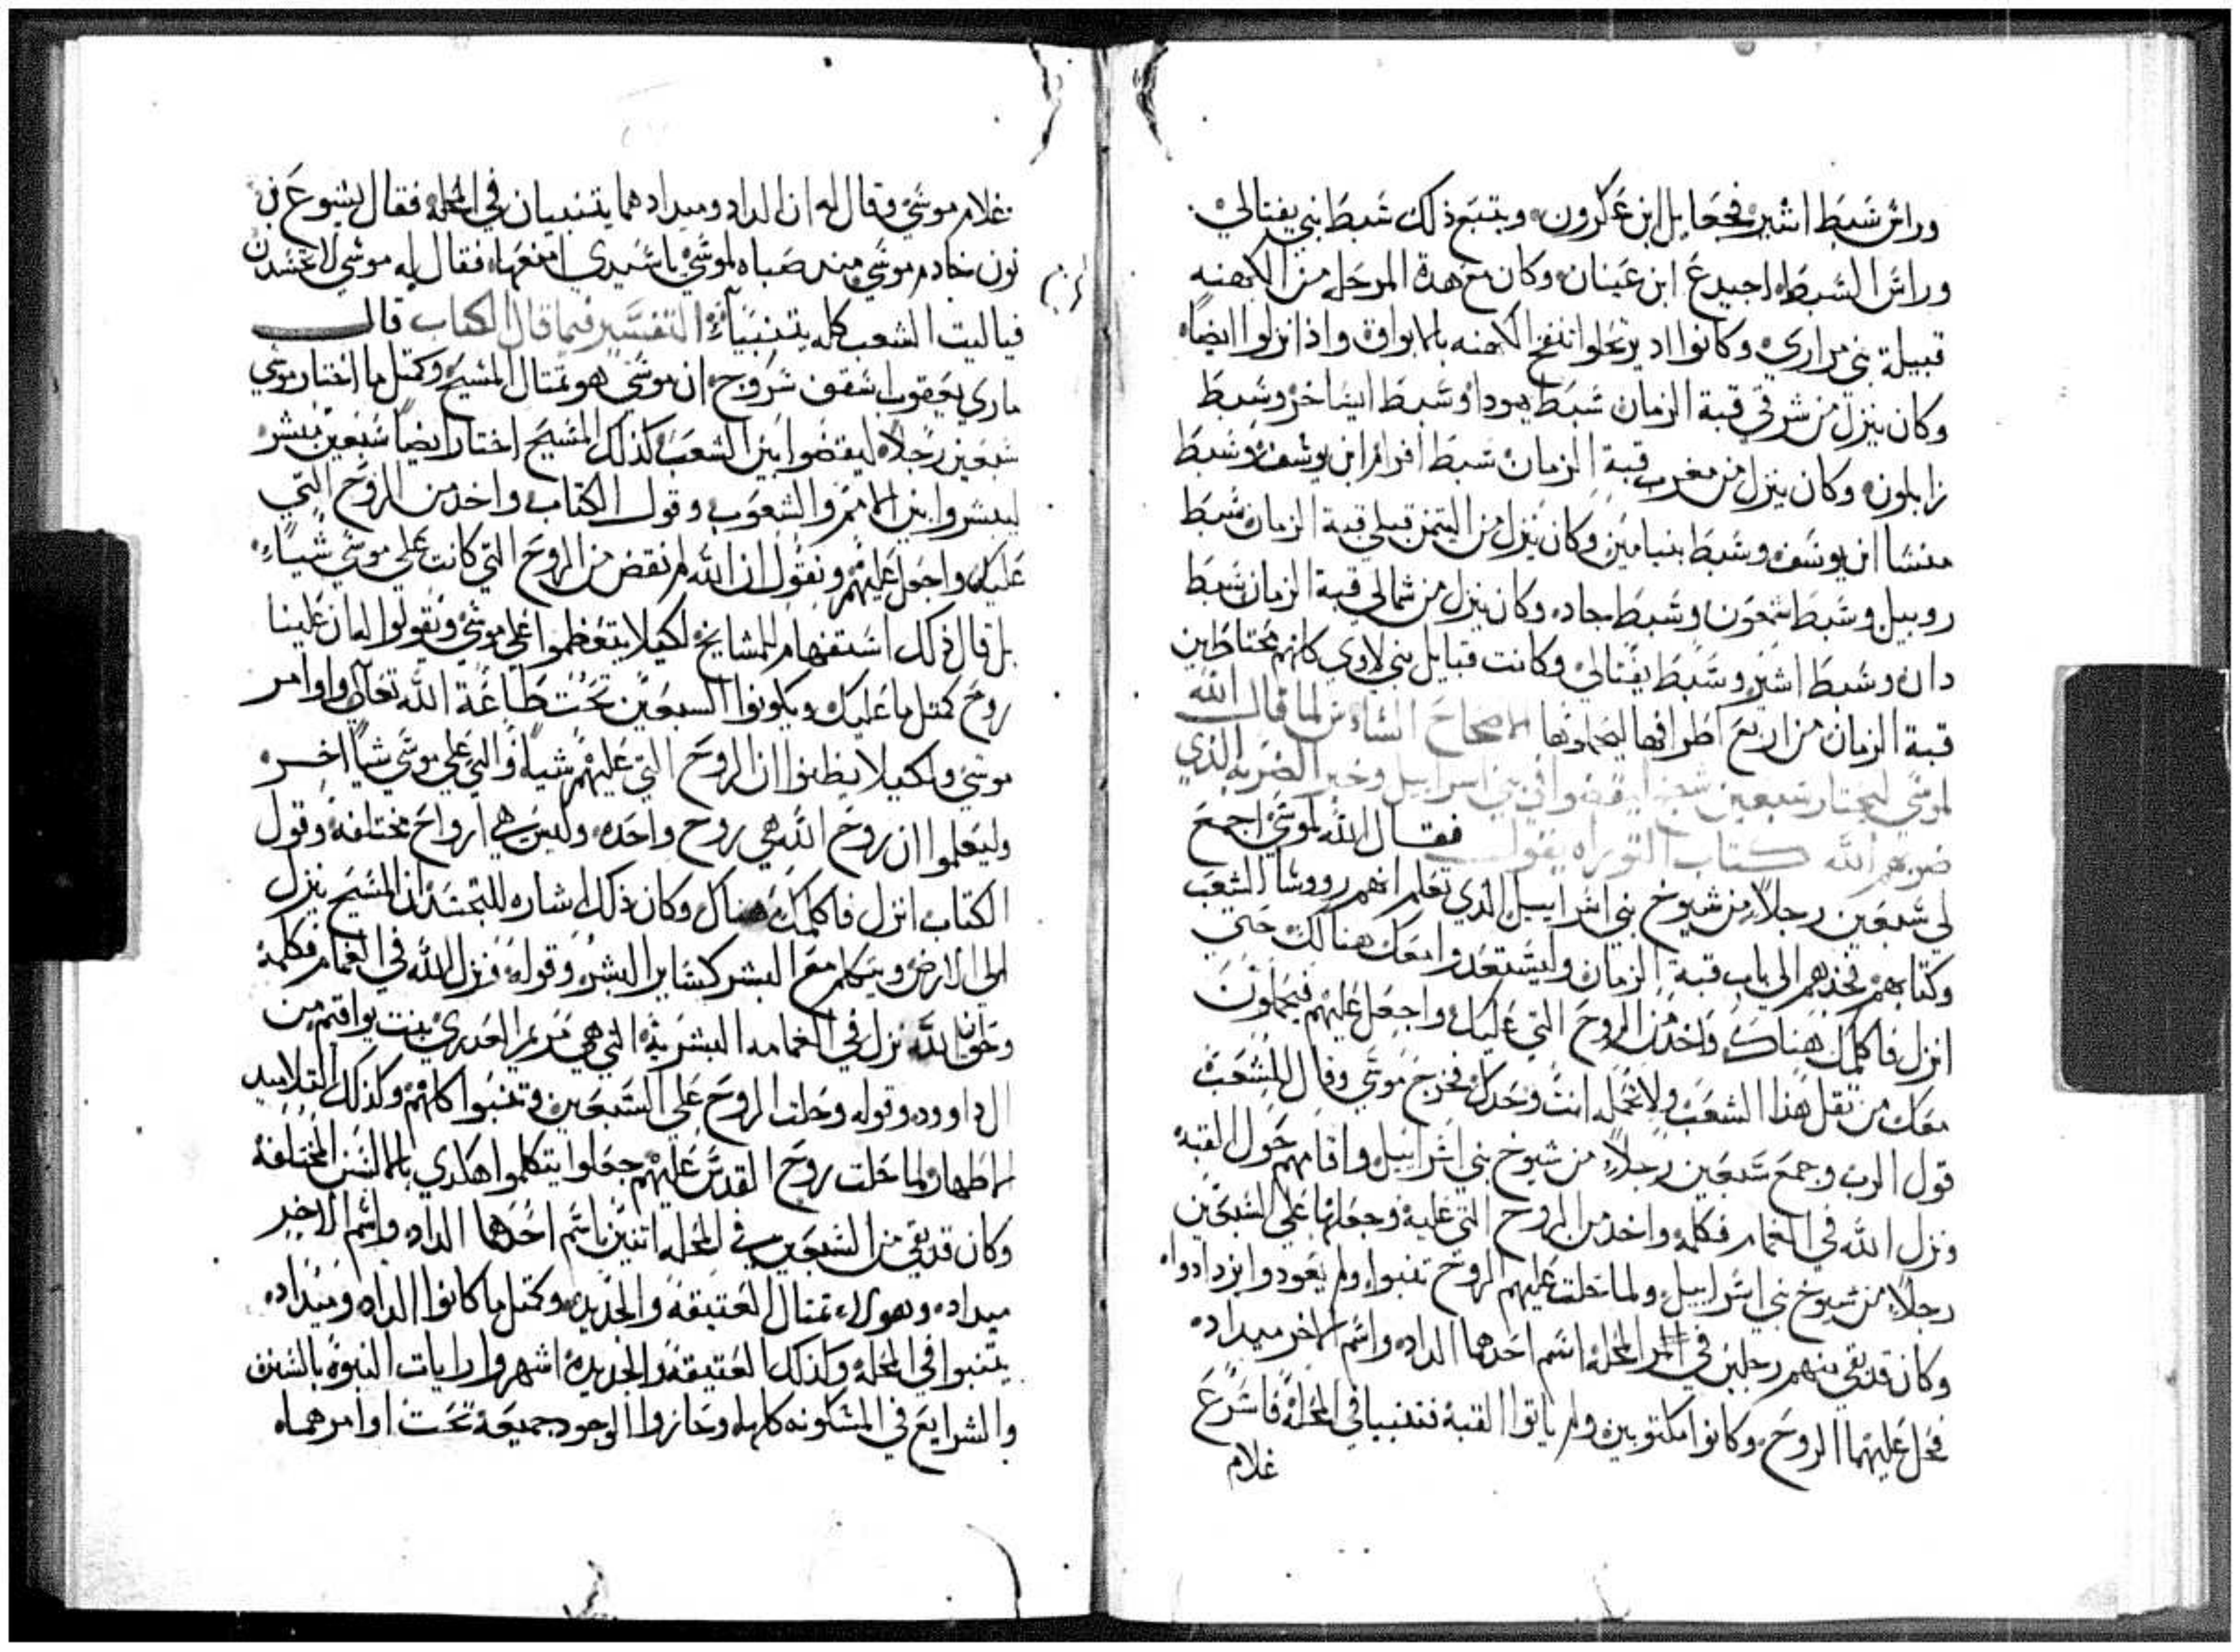 وراس شبط اشير فجعايل ابن عكرون ويتبع ذلك شبط بني يفتالي
وراس الشبط احيدع ابن عينان وكان مع هدة المرحله من الكهنه
قبيلة بني مراري وكانوا اد يرتحلوا تنفخ الكهنه بالابواق واذا نزلوا ايضاً
وكان ينزل من شرقي قبة الزمان شبط يهودا وشبط ايساخر وشبط
زابلون وكان ينزل من مغرب قبة الزمان شبط افرام ابن يوسف وشبط
منسا ابن يوسف وشبط بنيامين وكان ينزل من التيمن قبلي قبة الزمان شبط
روبيل وشبط شمعون وشبط جاد وكان ينزل من شمالي قبة الزمان شبط
دان وشبط اشير وشبط يفتالي وكانت قبايل بني لاوي كانهم محتاطين
قبة الزمان من اربع اطرافها ليصلونها الاصحاح السادس لما قال الله
لموسي ليختار سبعين شيخ ليقضوا في بني اسراييل وخبر الضربه الذي
ضربهم الله كتاب التوراه يقول فقال الله لموسي اجمع
لي سبعين رجلاً من شيوخ بني اسراييل الذي تعلم انهم رووسا الشعب
وكتابهم فخذهم الي باب قبة الزمان وليستعدوا معك هنالك حتي
انزل فاكلمك هناك واخد من الروح التي عليك واجعل عليهم فيحملون
معك من ثقل هذا الشعب ولا تحمله انت وحدك فخرج موسي وقال للشعب
قول الرب وجمع سبعين رجلاً من شيوخ بني اسراييل واقامهم حول القبة
ونزل الله في الغمام فكلمه واخد من الروح التي عليه وجعلها علي السبعين
رجلاً من شيوخ بني اسراييل ولما حلت عليهم الروح تنبوا ولم يعودوا يزدادوا
وكان قد بقي منهم رجلين في المحله اسم احدهما الداد واسم الاخر ميداد
فحل عليهما الروح وكانوا مكتوبين ولم ياتوا القبة فتنبيا في المحلة فاسرع
غلام
غلام موسي وقال له ان الداد وميداد هما يتنبيان في المحلة فقال يشوع بن
نون خادم موسي منذ صباه لموسي يا سيدي امنعهما فقال له موسي لا تحسدن
فياليت الشعب كله يتنبياء التفسير فيما قال الكتاب قال
ماري يعقوب اسقف سروج ان موسي هو تمتال المسيح وكمتل ما اختار موسي
سبعين رجلاً ليقضوا بين الشعب كذلك المسيح اختار ايضاً سبعين مبشر
ليبشروا بين الامم والشعوب وقول الكتاب واخد من الروح التي
عليك واجعل عليهم ونقول ان الله لم نقض من الروح التي كانت علي موسي شياً
بل قال ذلك استفهام للمشايخ لكيلا يتعظموا علي موسي ويقولوا لعان علينا
روح كمتل ما عليك ويكونوا السبعين تحت طاعة الله تعالي واوامر
موسي ولكيلا يظنوا ان الروح التي عليهم شياً والتي علي موسي شياً اخر
وليعلموا ان روح الله هي روح واحده وليس هي ارواح مختلفة وقول
الكتاب انزل فاكلمك هناك وكان ذلك اشاره للتجسد ان المسيح ينزل
الي الارض ويتكلم مع البشر كساير البشر وقوله ونزل الله في الغمام فكلمه
وحقاً الله نزل في الغمامه البشرية التي هي مريم العدري بنت يواقيم من
ال داوود وقوله وحلت الروح علي السبعين وتنبوا كلهم وكذلك التلاميد
الاطهار لما حلت روح القدس عليهم جعلوا يتكلموا هكدي بالالسن المختلفة
وكان قد بقي من السبعين في المحلة اتنين باسم احدهما الداد واسم الاخير
ميداد وهولاء تمتال العتيقة والجديدة وكمتل ما كانوا الداد وميداد
يتنبوا في المحلة وكذلك العتيقة والجديدة اشهروا رايات النبوة بالسنن
والشرايع في المسكونه كلها وحازوا الوجود جميعة تحت اوامرهما